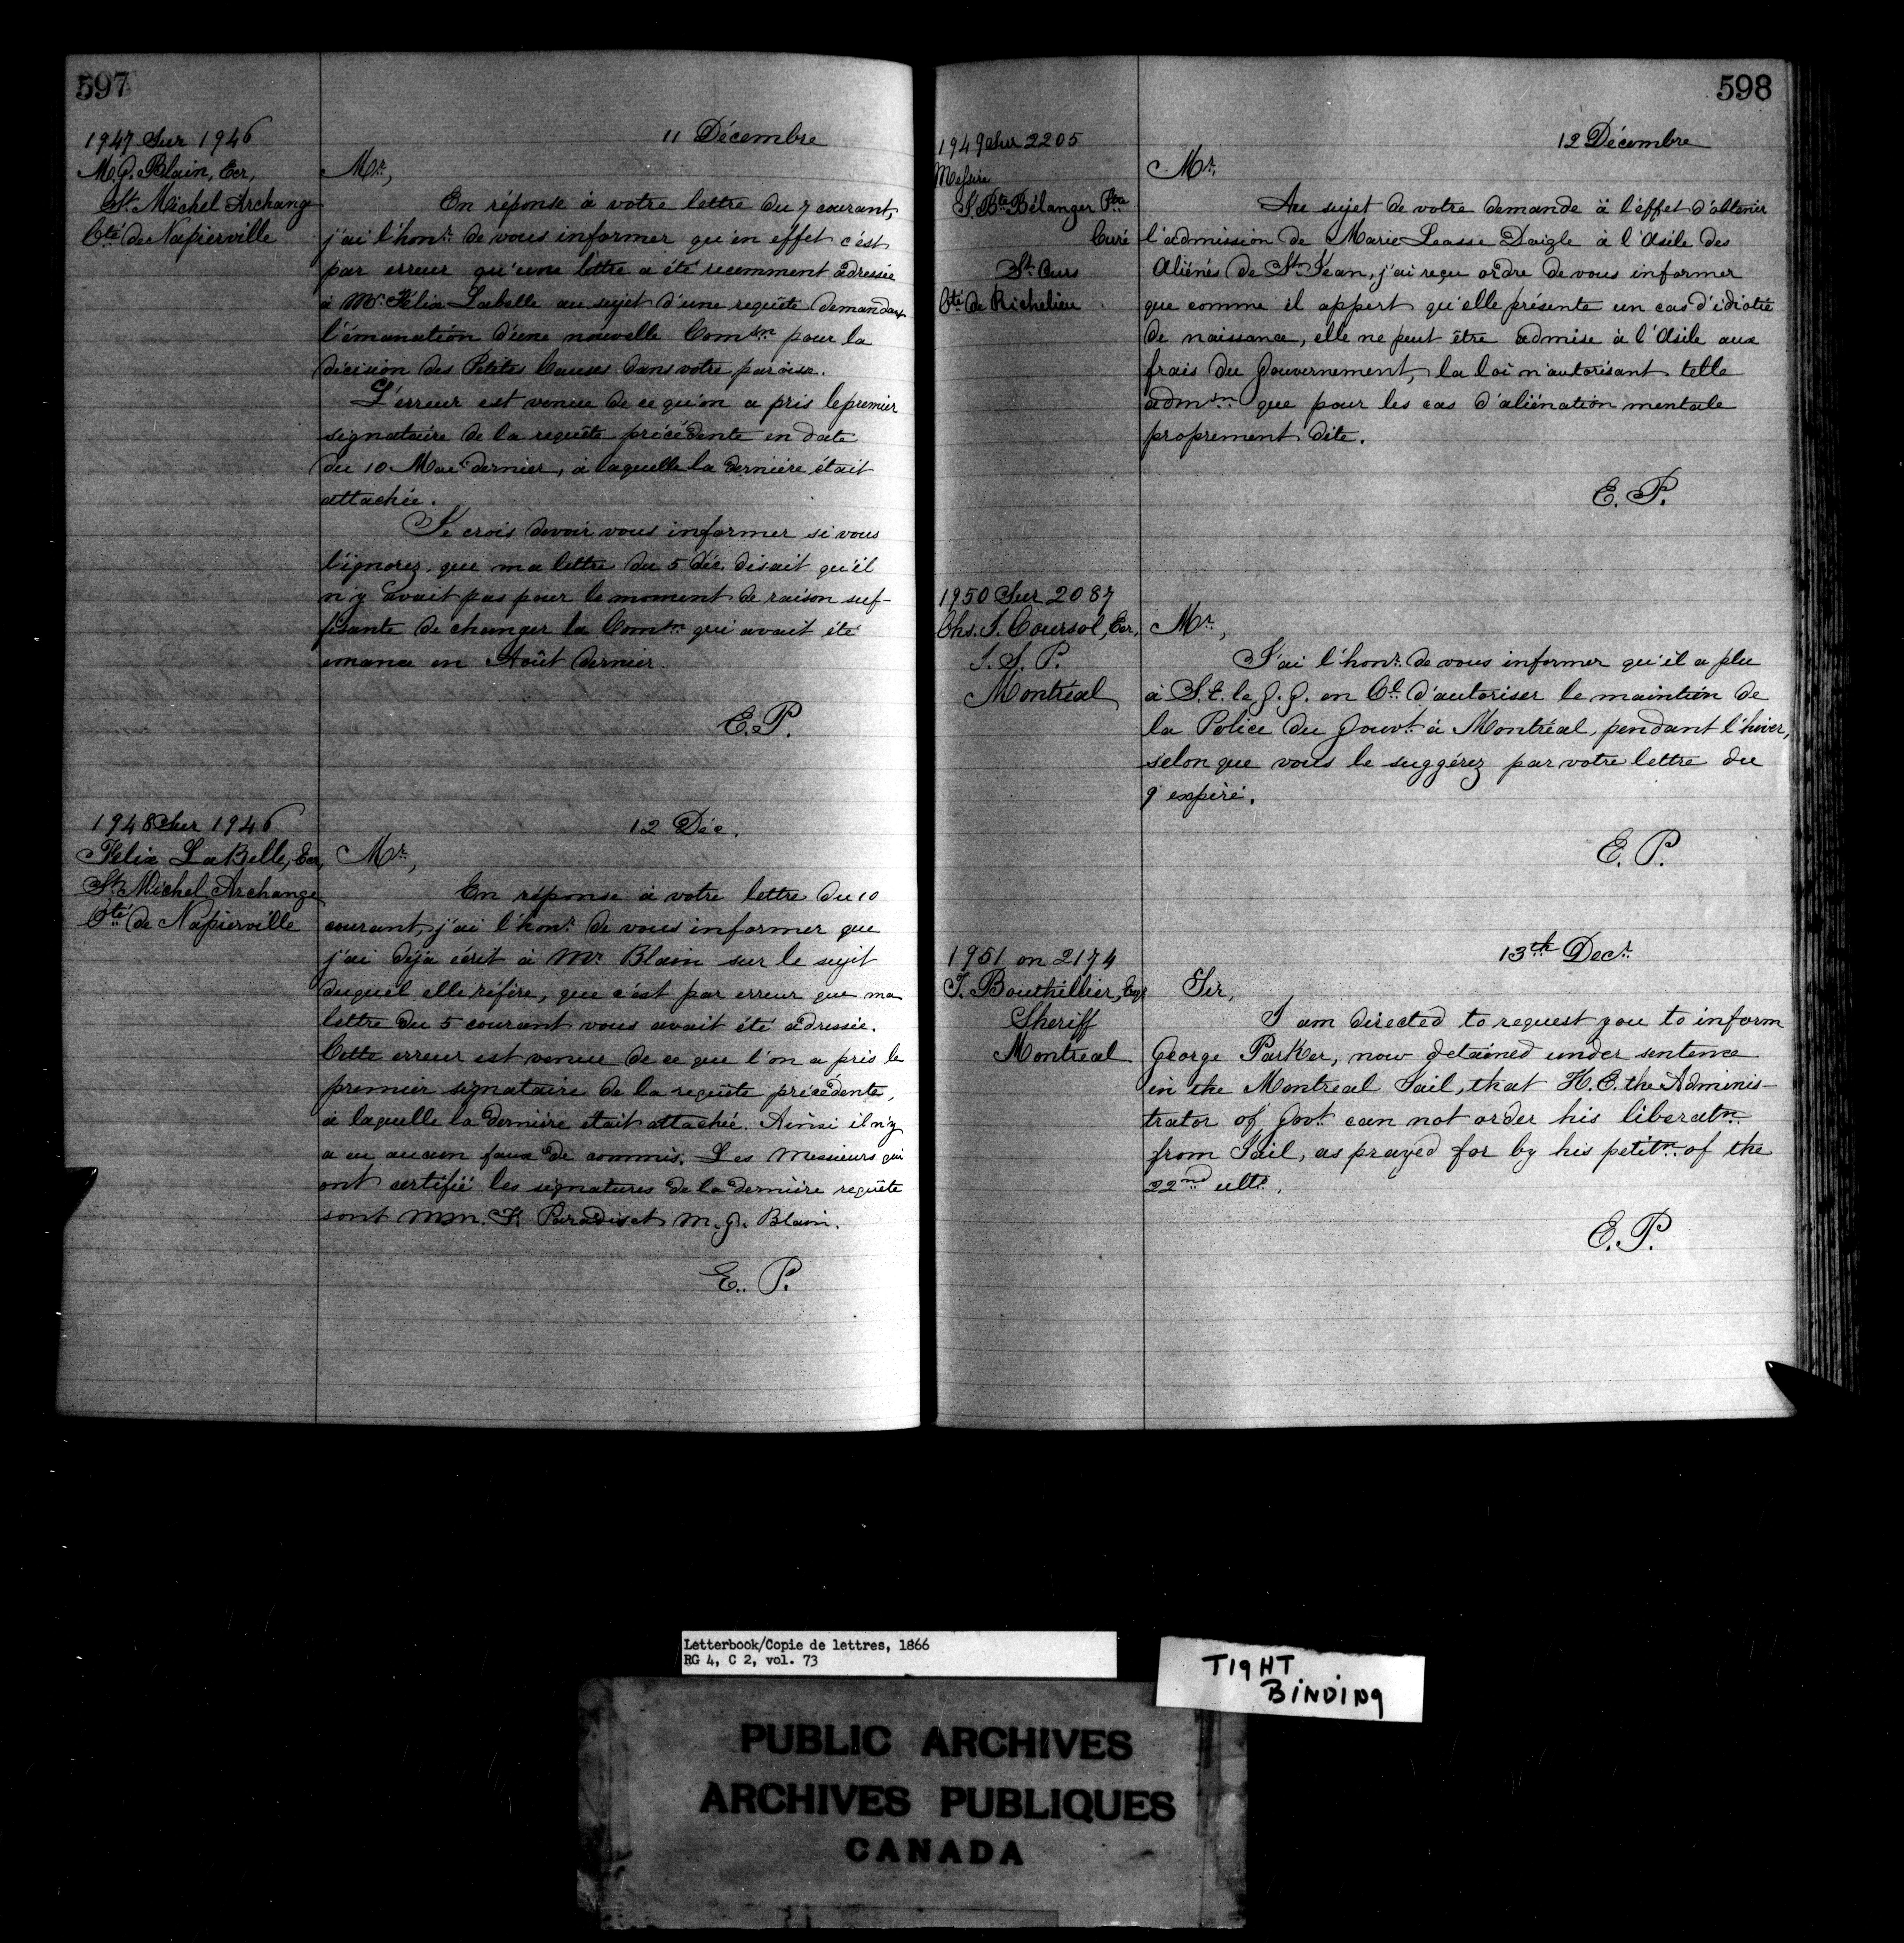 597
11 Décembre
1947 Sur 1946
M. G. Blain, Ecr,
St. Michel Archange
Cté de Napierville
Mr,
En réponse à votre lettre du 7 courant,
j'ai l'honr. de vous informer qu'en effet c'est
par erreur qu'une lettre a été recemment adressée
à Mr. Félix Labelle au sujet d'une requête demandant
l'émanation d'une nouvelle Comsn pour la
décision des Petites Causes dans votre paroisse.
L'erreur est venue de ce qu'on a pris le premier
signataire de la requête précédente en date
du 10 Mai dernier, à laquelle la dernière était
attachée.
Je crois devoir vous informer si vous
l'ignorez, que ma lettre du 5 déc. disait qu'il
n'y avait pas pour le moment de raison suf-
fisante de changer la Comtn qui avait été
emanée en Août dernier.
E. P.
1948 Sur 1946
Felix LaBelle, Ecr,
St. Michel Archange
Cté de Napierville
12 Déc.
Mr,
En réponse à votre lettre du 10
courant, j'ai l'honr. de vous informer que
j'ai déjà écrit à Mr Blain sur le sujet
duquel elle réfère, que c'est par erreur que ma
lettre du 5 courant vous avait été adressée.
Cette erreur est venue de ce que l'on a pris le
premier signataire de la requête précédente,
à laquelle la dernière était attachée. Ainsi il n'y
a eu aucun faux de commis. Les Messieurs qui
ont certifié les signatures de la dernière requête
sont MM. Paradis et M. G. Blain.
E. P.
598
12 Décembre
1949 Sur 2205
Messire
J Bte Bélanger Ptre
Curé
St. Ours
Cté de Richelieu
Mr.
Au sujet de votre demande à l'effet d'obtenir
l'admission de Marie Leasse Daigle à l'Asile des
Aliénés de St. Jean, j'ai reçu ordre de vous informer
que comme il appert qu'elle présente un cas d'idiotie
de naissance, elle ne peut être admise à l'Asile aux
frais du Gouvernement, la loi n'autorisant telle
admsn que pour les cas d'aliénation mentale
proprement dite.
E. P.
1950 Sur 2087
Chs. J. Coursol, Ecr,
J. S. P.
Montréal
Mr,
J'ai l'honr. de vous informer qu'il a plu
à S. E. le G. G. en Cl. d'autoriser le maintien de
la Police du Gouvt. à Montréal, pendant l'hiver,
selon que vous le suggérez par votre lettre du
9 expiré.
E. P.
1951 on 2174
T. Bouthillier, Esqr
Sheriff
Montreal
13th Decr.
Sir,
I am directed to request you to inform
George Parker, now detained under sentence
in the Montreal Jail, that H. E. the Adminis-
trator of Govt. can not order his liberatn.
from Jail, as prayed for by his petitn. of the
22nd ulto.
E. P.
Letterbook/Copie de lettres, 1866
RG 4, C 2, vol. 73
TIGHT
BINDING
PUBLIC ARCHIVES
ARCHIVES PUBLIQUES
CANADA